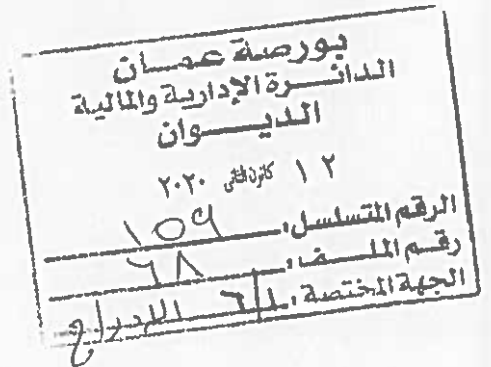 بورصة عمـــان
الدائـــرة الإدارية والمالية
الديـــوان
١٢ كانون الثاني ٢٠٢٠
الرقم المتسلسل: ١٥٩
رقم الملـــف: ٦٨
الجهة المختصة: الإدراج